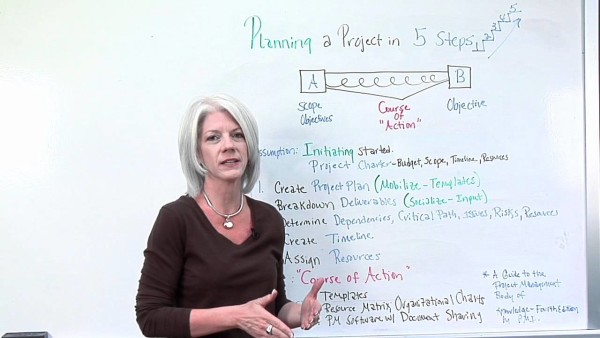 Planning a Project in 5 Steps
1 2 3 4 5
A B
Scope Objective
Objectives
Course
of
"Action"
ssumption: Initiating started.
Project Charter - Budget, Scope, Timeline, Resources
1. Create Project Plan (Mobilize - Templates)
Breakdown Deliverables (Socialize - Input)
Determine Dependencies, Critical Path, issues, Risks, Resources
Create Timeline.
Assign Resources
"Course of Action"
Templates
Resource Matrix, Organizational Charts
PM Software w/ Document Sharing
* A Guide to the
Project Management
Body of
Knowledge - Fourth Edition
PMI.